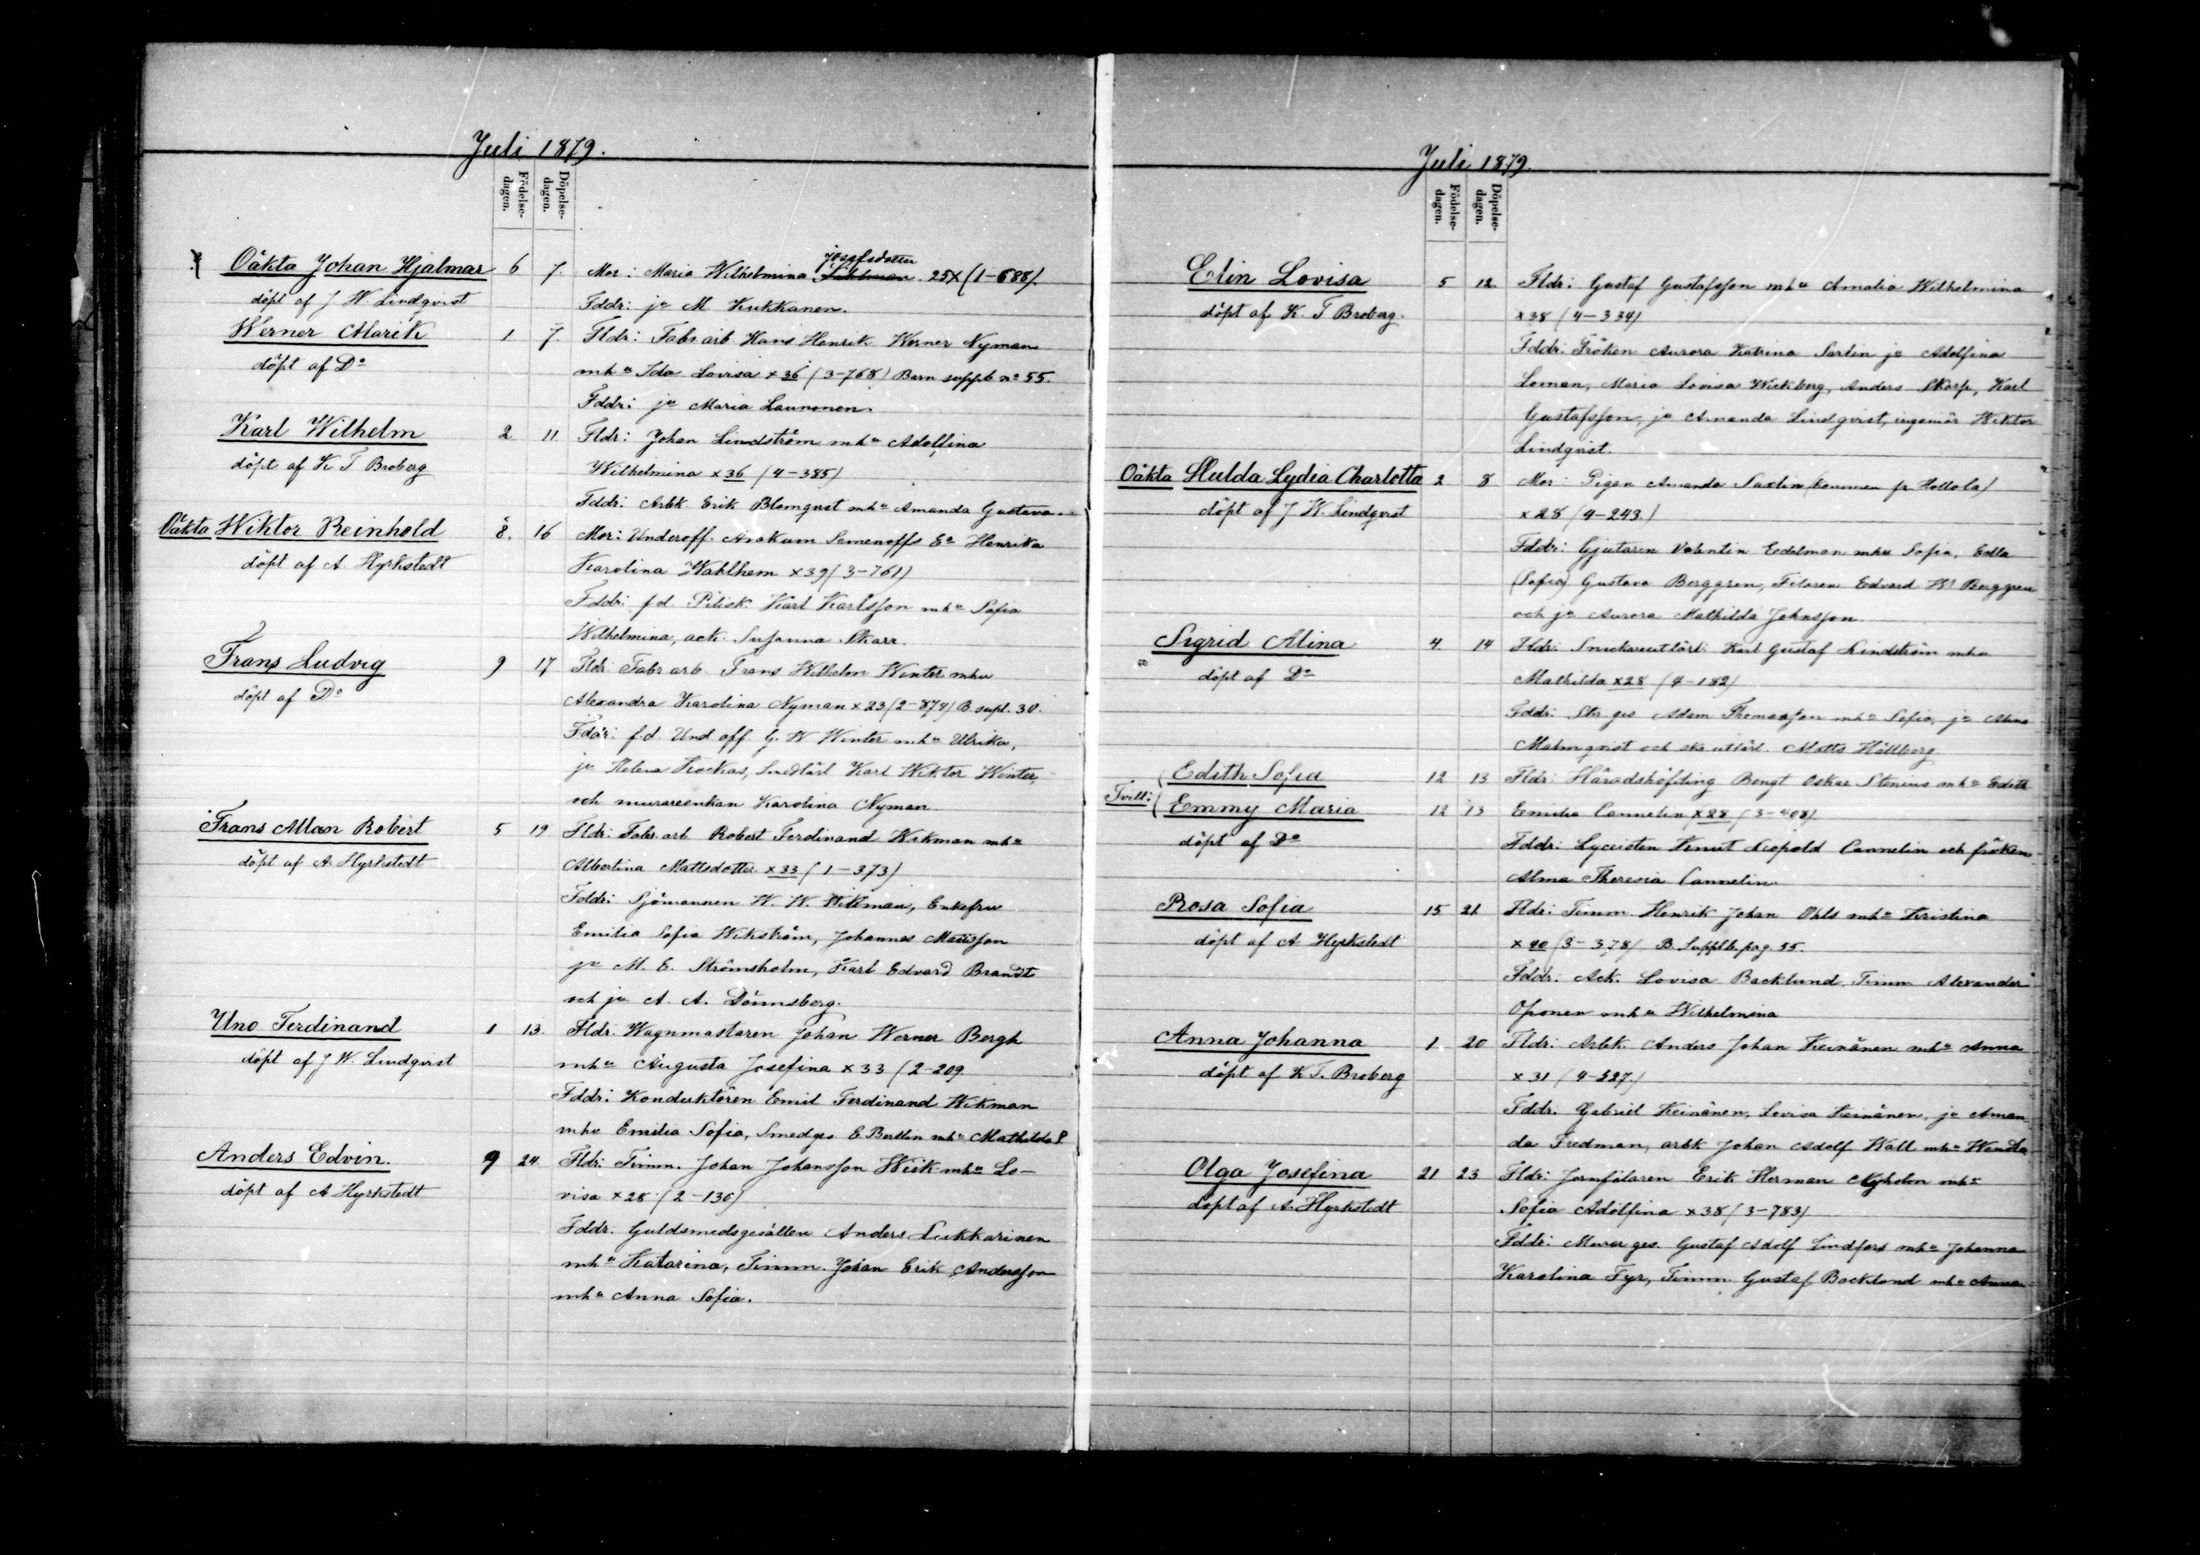 Juli 1879.
Födelse-dagen.
Döpelse-dagen.
Oäkta Johan Hjalmar 6 7. Mor: Maria Wilhelmina Josefsdotter 25 x (1-688).
döpt af J W. Lindqvist
Fddr: ja M. Kukkanen.
Werner Marik 1. 7. Fldr: Fabr. arb Hans Henrik Werner Nyman
döpt af Do
mha Ida Lovisa x 36 (3-768) Barn suppl. no 55.
Fddr: ja Maria Launonen.
Karl Wilhelm 2 11 Fldr: Johan Lindström mha Adolfina
döpt af K T Broberg
Wilhelmina x 36 (4-385)
Fddr: Arbk. Erik Blomqvist mha Amanda Gustava.
Oäkta Wiktor Reinhold 8. 16 Mor: Underoff. Avakum Semenoffs Ea Henrika
döpt af A Hyrkstedt
Karolina Wahlhem x 39 (3-761)
Fddr: f.d. Pilisk. Karl Karlsson mha Sofia
Wilhelmina, ack. Susanna Skarr.
Frans Ludvig 9 17 Fldr: Fabr arb. Frans Wilhelm Winter mha
döpt af Do
Alexandra Karolina Nyman x 23 (2-874) B. supl. 30.
Fddr: f.d. Und off. G. W Winter mha Ulrika,
ja Helena Kockas, Smedlärl Karl Wiktor Winter,
och murareenkan Karolina Nyman
Frans Allan Robert 5 19 Fldr: Fabr. arb Robert Ferdinand Wikman mha
döpt af A. Hyrkstedt
Albertina Mattsdotter x 33 (1-373)
Fddr: Sjömannen W. W. Wikman, Enkefru
Emilia Sofia Wikström, Johannes Mattsson
ja M. E. Strömsholm, Karl Edvard Brandt
och ja A. A. Dönnsberg.
Uno Ferdinand 1 13. Fldr: Wagnmästaren Johan Werner Bergh
döpt af J W. Lindqvist
mha Augusta Josefina x 33 (2-209.
Fddr: Konduktören Emil Ferdinand Wikman
mha Emilia Sofia, Smedges E Berllin mha Mathilda
Anders Edvin. 9 24. Fldr: Timm. Johan Johansson Wiik mha Lo-
döpt af A Hyrkstedt
visa x 28 (2-130)
Fddr. Guldsmedsgesällen Anders Lukkarinen
mha Katarina, Timm. Johan Erik Andersson
mha Anna Sofia.
Juli 1879.
Födelse-dagen.
Döpelse-dagen.
Elin Lovisa 5 12. Fldr: Gustaf Gustafsson mha Amalia Wilhelmina
döpt af K. T Broberg.
x 38 (4-334)
Fddr: Fröken Aurora Katrina Sarlin ja Adolfina
Loman, Maria Lovisa Wickberg, Anders Skarp, Karl
Gustafsson, ja Amanda Lindqvist, ingeniör Wiktor
Lindqvist.
Oäkta Hulda Lydia Charlotta 2 8 Mor: Pigan Amanda Saxlin (kommen fr Hollola)
döpt af J W. Lindqvist
x 28 (4-243.)
Fddr: Gjutaren Valentin Eedelman mha Sofia, Edla
(Sofia) Gustava Berggren, Filaren Edvard Wm Berggren
och ja Aurora Mathilda Johnsson
Sigrid Alina 4. 14 Fldr: Snickareutlärl: Karl Gustaf Lindström mha
döpt af Do
Mathilda x 28 (4-182)
Fddr: Skr. ges Adam Thomasson mha Sofia, ja Alina
Malmqvist och ska utlärl. Matts Hällberg
Tvill: Edith Sofia 12 13 Fldr: Häradshöfding Bengt Oskar Stenius mha Edith
Emmy Maria 12 13 Emilia Cannelin x 28 (3-408)
döpt af Do
Fddr: Lyceisten Knut Leopold Cannelin och fröken
Alma Theresia Cannelin.
Rosa Sofia 15 21. Fldr: Timm. Henrik Johan Ohls mha Kristina
döpt af A Hyrkstedt
x 40 (3-378) B. Supplb. pag. 55.
Fddr: Ack. Lovisa Backlund, Timm Alexander
Oponen mha Wilhelmina
Anna Johanna 1. 20 Fldr: Arbk. Anders Johan Keinänen mha Anna
döpt af K T. Broberg
x 31 (4-527.)
Fddr. Gabriel Keinänen, Lovisa Keinänen, ja Aman-
da Fredman, arbk Johan Adolf Wall mha Wendla
Olga Josefina 21 23 Fldr: Jernfilaren Erik Herman Nyholm mha
döpt af A Hyrkstedt
Sofia Adolfina x 38 (3-783)
Fddr: Murar ges. Gustaf Adolf Lindfors mha Johanna
Karolina Fyr, Timm Gustaf Backlund mha Anna